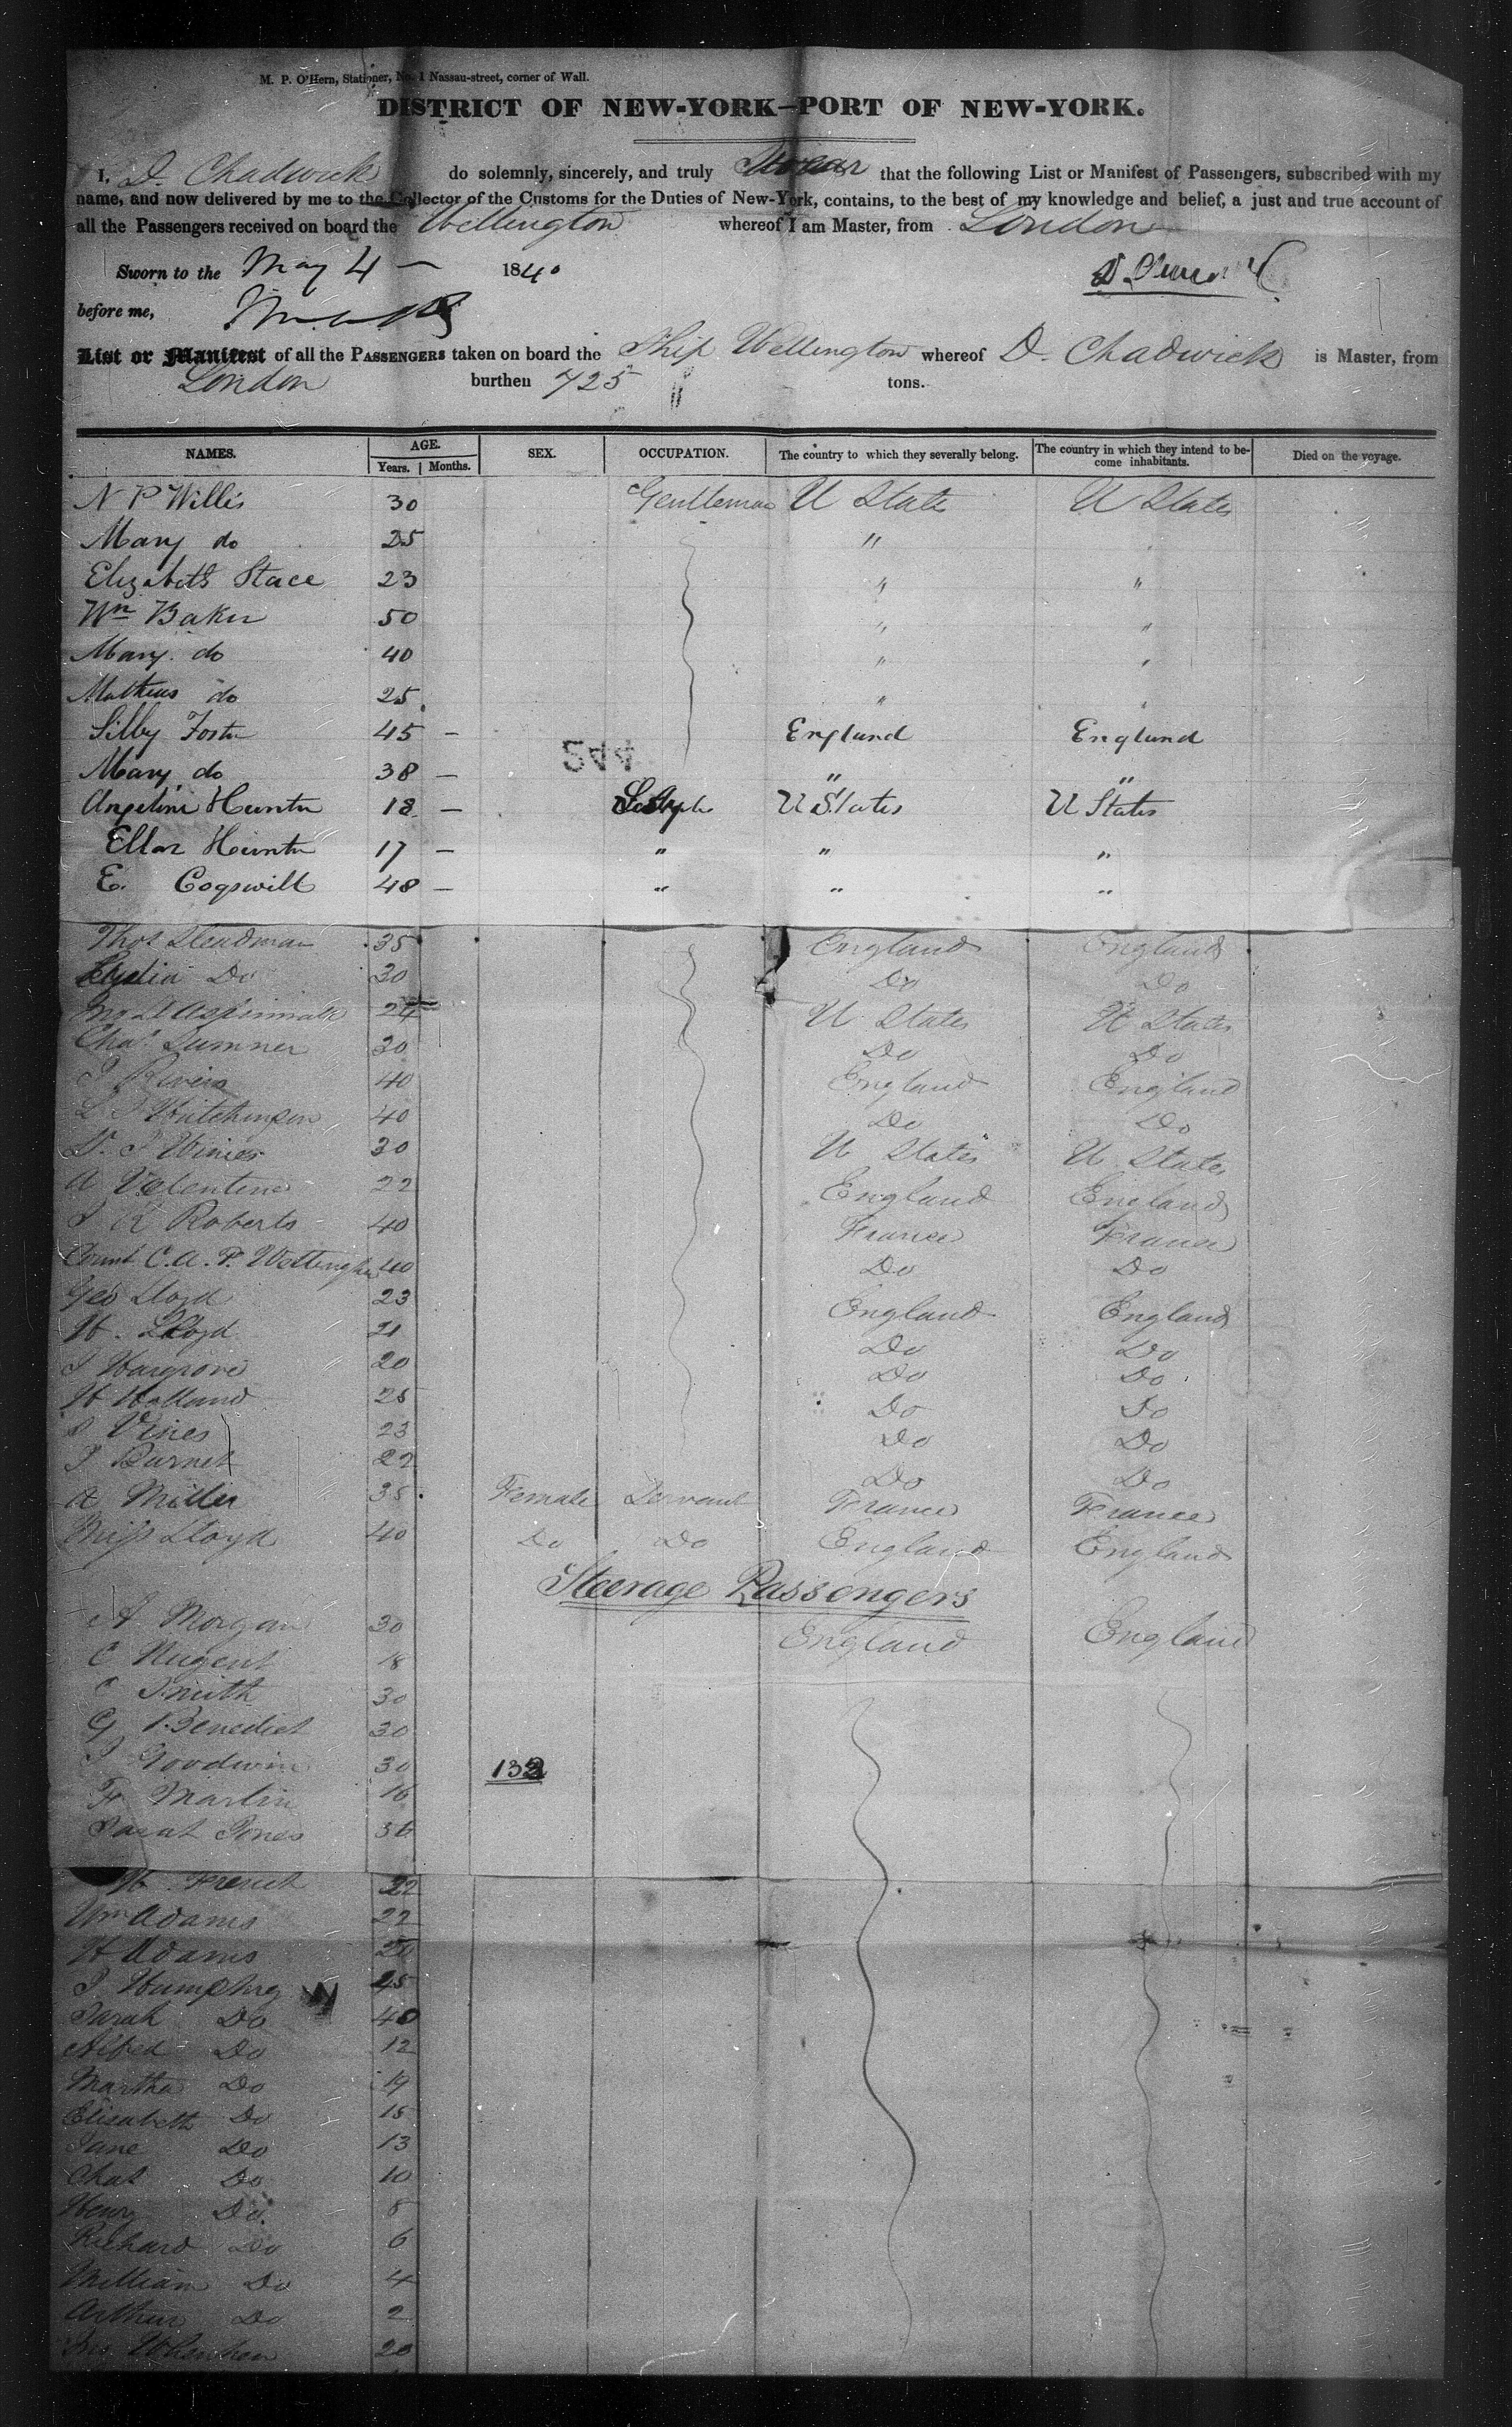 M. P. O'Hern, Stationer, No. 1 Nassau-street, corner of Wall.
DISTRICT OF NEW-YORK—PORT OF NEW-YORK.
I, D. Chadwick do solemnly, sincerely, and truly Swear that the following List or Manifest of Passengers, subscribed with my
name, and now delivered by me to the Collector of the Customs for the Duties of New-York, contains, to the best of my knowledge and belief, a just and true account of
all the Passengers received on board the Wellington whereof I am Master, from London
Sworn to the May 4 1840
before me,
List or Manifest of all the PASSENGERS taken on board the Ship Wellington whereof D. Chadwick is Master, from
London burthen 725 tons.
NAMES. AGE. Years. Months. SEX. OCCUPATION. The country to which they severally belong. The country in which they intend to become inhabitants. Died on the voyage.
N P Willis 30 Gentleman U States U States
Mary do 25 "
Elizabeth Stace 23 " "
Wm Baker 50 " "
Mary do 40 " "
Mathews do 25 " "
Silby Foster 45 – England England
544
Mary do 38 – " "
Angeline Hunter 18 – U States U States
Ellen Hunter 17 – " " "
E. Cogswill 48 – " " "
Thos Steadman 35 England England
Lydia Do 30 Do Do
Jno L Aspinwall 24 U States U States
Chas Sumner 30 Do Do
J Rivers 40 England England
L J Hutchinson 40 Do Do
30 U States U States
A Valentine 22 England England
J R Roberts 40 France France
Count C. A. P. 40 Do Do
Geo Lloyd 23 England England
H. Lloyd 21 Do Do
J Hargrove 20 Do Do
H Holland 25 Do Do
J Vines 23 Do Do
J Burnet 22 Do Do
A Miller 35 Female Servant France France
Miss Lloyd 40 Do Do England England
Steerage Passengers
A Morgan 30 England England
C Nugent 18
C Smith 30
G Benedict 30
J Goodwin 30 132
Fr Martin 16
Sarah Jones 36
H French 22
Wm Adams 22
H Adams 20
J Humphrey 45
Sarah Do 40
Alfred Do 12
Martha Do 19
Elisabeth Do 15
Jane Do 13
Chas Do 10
Henry Do 8
Richard Do 6
William Do 4
Arthur Do 2
20